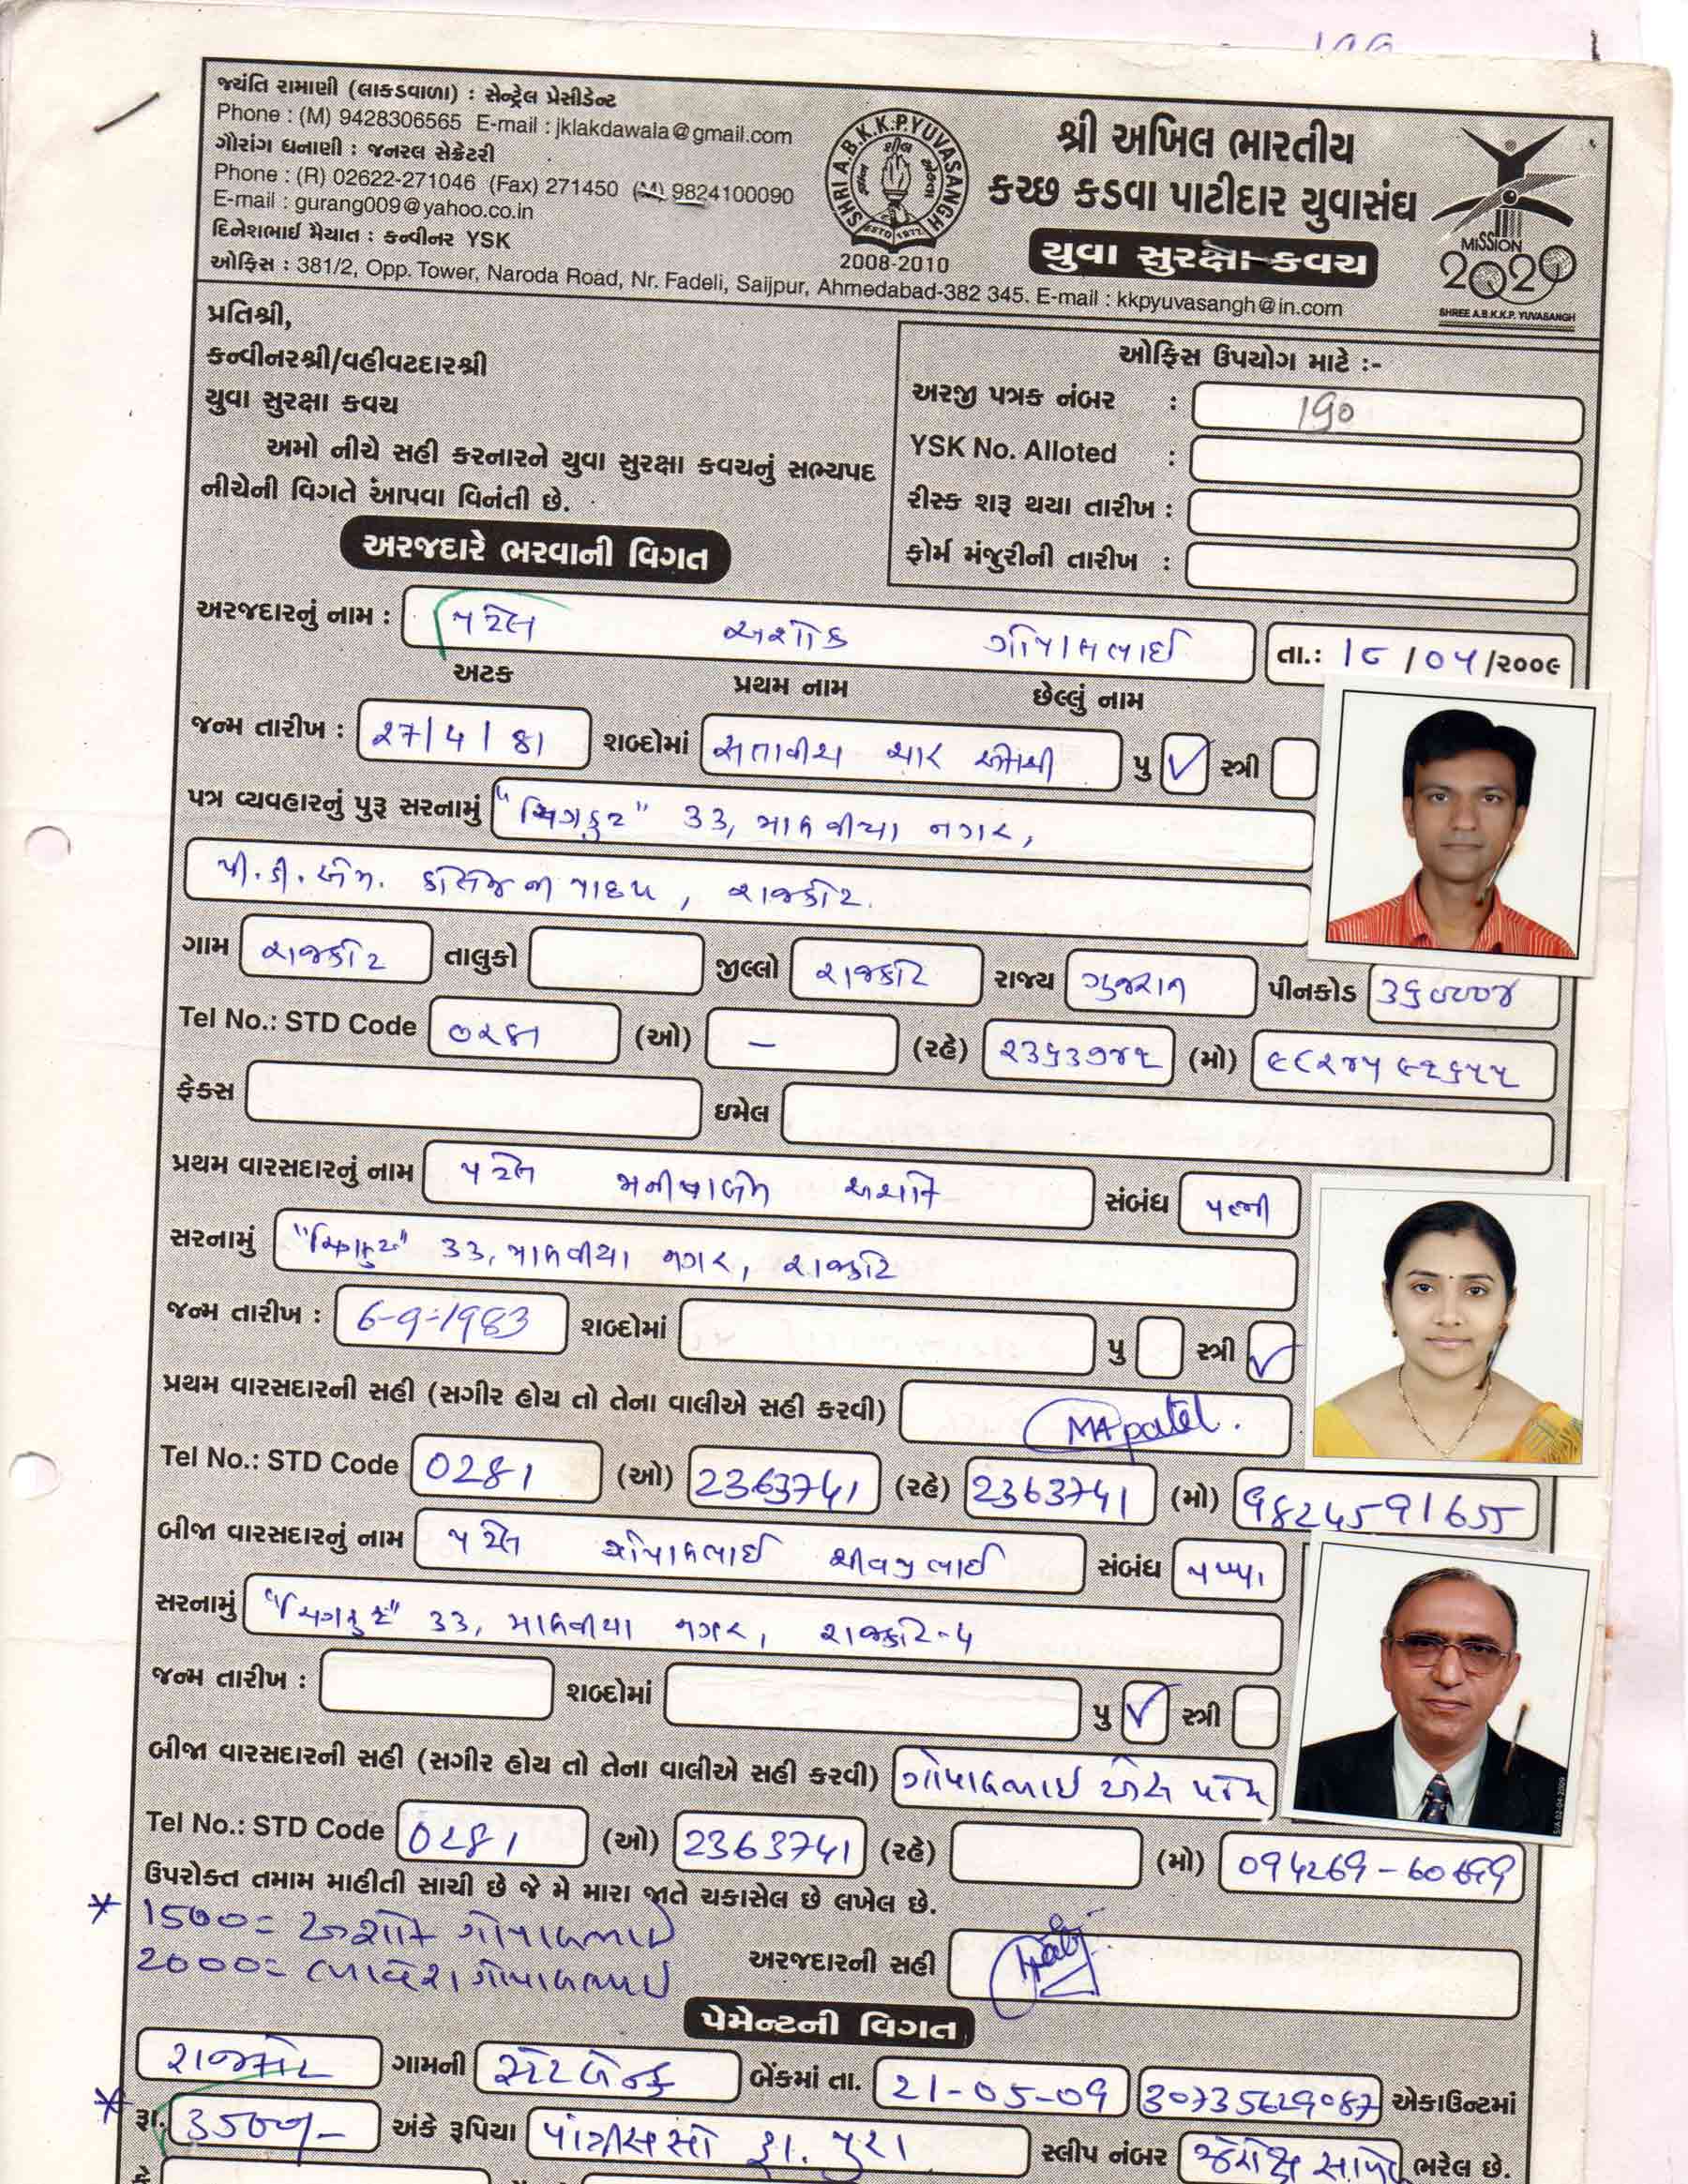 જયંતિ રામાણી (લાકડાવાળા) : સેન્ટ્રેલ પ્રેસીડેન્ટ
Phone : (M) 9428306565 E-mail : jklakdawala@gmail.com
ગૌરાંગ ધનાણી : જનરલ સેક્રેટરી
Phone : (R) 02622-271046 (Fax) 271450 (M) 9824100090
E-mail : gurang009@yahoo.co.in
દિનેશભાઈ મૈયાત : કન્વીનર YSK
ઓફિસ : 381/2, Opp. Tower, Naroda Road, Nr. Fadeli, Saijpur, Ahmedabad-382 345. E-mail : kkpyuvasangh@in.com
SHRI A.B.K.K.P.YUVASANGH
ESTD 1972
2008-2010
શ્રી અખિલ ભારતીય
કચ્છ કડવા પાટીદાર યુવાસંઘ
યુવા સુરક્ષા કવચ
MISSION
2020
SHREE A.B.K.K.P. YUVASANGH
પ્રતિશ્રી,
કન્વીનરશ્રી/વહીવટદારશ્રી
યુવા સુરક્ષા કવચ
અમો નીચે સહી કરનારને યુવા સુરક્ષા કવચનું સભ્યપદ
નીચેની વિગતે આપવા વિનંતી છે.
ઓફિસ ઉપયોગ માટે :-
અરજી પત્રક નંબર : 190
YSK No. Alloted :
રીસ્ક શરૂ થયા તારીખ :
ફોર્મ મંજુરીની તારીખ :
અરજદારે ભરવાની વિગત
અરજદારનું નામ : પટેલ અશોક ગોપાલભાઈ તા.: ૧૮ /૦૫ /૨૦૦૯
અટક પ્રથમ નામ છેલ્લું નામ
જન્મ તારીખ : ૨7/4/81 શબ્દોમાં સતાવીસ ચાર એક્યાશી પુ ✓ સ્ત્રી
પત્ર વ્યવહારનું પુરૂ સરનામું "ચિત્રકુટ" 33, માલવીયા નગર,
પી.ડી.એમ. કોલેજ ની પાછળ, રાજકોટ.
ગામ રાજકોટ તાલુકો જીલ્લો રાજકોટ રાજ્ય ગુજરાત પીનકોડ ૩૬૦૦૦૪
Tel No.: STD Code ૦૨૮૧ (ઓ) – (રહે) ૨૩૬૩૭૪૧ (મો) ૯૮૨૪૫૯૧૬૫૫
ફેક્સ ઇમેલ
પ્રથમ વારસદારનું નામ પટેલ મનીષાબેન અશોક સંબંધ પત્ની
સરનામું "ચિત્રકુટ" 33, માલવીયા નગર, રાજકોટ
જન્મ તારીખ : 6-9-1983 શબ્દોમાં પુ સ્ત્રી ✓
પ્રથમ વારસદારની સહી (સગીર હોય તો તેના વાલીએ સહી કરવી) MApatel.
Tel No.: STD Code 0281 (ઓ) 2363741 (રહે) 2363741 (મો) 9824591655
બીજા વારસદારનું નામ પટેલ ગોપાલભાઈ શીવજીભાઈ સંબંધ પપ્પા
સરનામું "ચિત્રકુટ" 33, માલવીયા નગર, રાજકોટ-4
જન્મ તારીખ : શબ્દોમાં પુ ✓ સ્ત્રી
બીજા વારસદારની સહી (સગીર હોય તો તેના વાલીએ સહી કરવી) ગોપાલભાઈ એસ પટેલ
Tel No.: STD Code 0281 (ઓ) 2363741 (રહે) (મો)
ઉપરોક્ત તમામ માહીતી સાચી છે જે મે મારા જાતે ચકાસેલ છે લખેલ છે.
* 1500= અશોક ગોપાલભાઈ
2000= ભાવેશ ગોપાલભાઈ
અરજદારની સહી
પેમેન્ટની વિગત
રાજકોટ ગામની સ્ટેટ બેન્ક બેંકમાં તા. 21-05-09 30735629087 એકાઉન્ટમાં
* રૂા. 3500/- અંકે રૂપિયા પાંત્રીસસો રૂા. પુરા સ્લીપ નંબર ઝેરોક્ષ સામેલ ભરેલ છે.